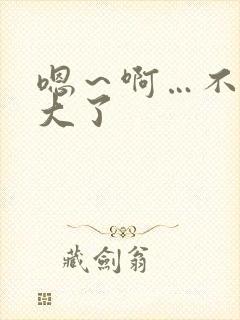 嗯～啊…不
大了
藏劍翁